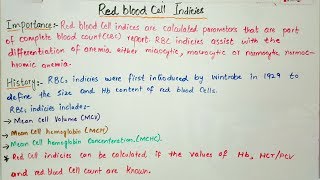 Red blood Cell Indicies
Importance:- Red blood Cell indices are calculated parameters that are part
of complete blood count(CBC) report. RBC indicies assist with the
differentiation of anemia either miacytic, macrocytic or normocytic normoch-
hromic anemia.
History:- RBCs indicies were first introduced by Wintrobe in 1929 to
define the size and Hb content of red blood Cells.
RBCs indicies include:-
→ Mean Cell Volume (MCV)
→ Mean Cell hemoglobin (MCH)
→ Mean Cell hemoglobin Concentration. (MCHC)
* Red Cell indicies can be calculated if the values of Hb, HCT/PCV
and red blood Cell count are known.